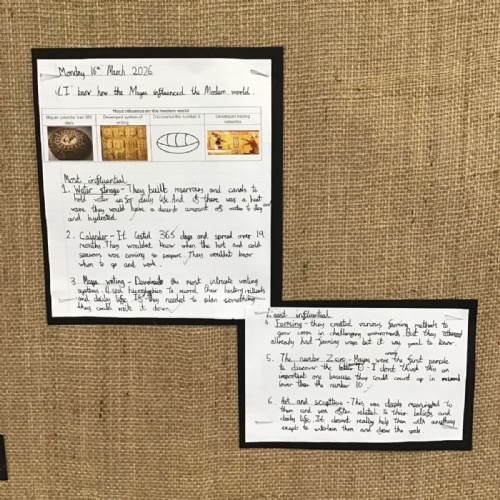 Monday 16th March 2026
I know how the Maya influenced the Modern world.
Maya influence on the modern world
Mayan calendar had 365 days
Developed system of writing
Discovered the number 0
Developed trading networks
Most influential
1. Water storage - They built reservoirs and canals to
hold water for daily life. And if there was a heat
wave they would have a decent amount of water to stay cool
and hydrated.
2. Calendar - It lasted 365 days and spread over 19
months. They wouldnt know when the hot and cold
seasons were coming to prepare. They wouldnt know
when to go and work.
3. Maya writing - the most intricate writing
systems. Used hieroglyphics to record their history, rituals
and daily life. If they needed to plan something
they could write it down.
Least influential
4. Farming - they created various farming methods to
grow crops in challenging environments. But they
already had farming ways but it was good to know.
5. The number Zero - Mayas were the first people
to discover the 0 - I dont think this as
important one because they could count up in
lower than the number 10
6. Art and sculpture - This was deeply meaningful to
them and was often related to their beliefs and
daily life. It doesnt really help them with anything
except to entertain them and show the gods.